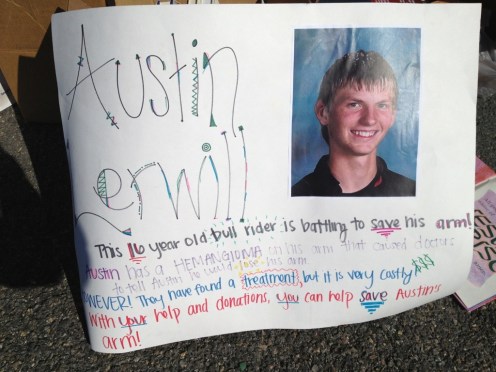 Austin
Lerwill
This 16 year old bull rider is battling to save his arm!
Austin has a HEMANGIOMA on his arm that caused doctors
to tell Austin he would lose his arm.
HOWEVER! They have found a treatment, but it is very costly $$$
With your help and donations, you can help save Austin's
arm!